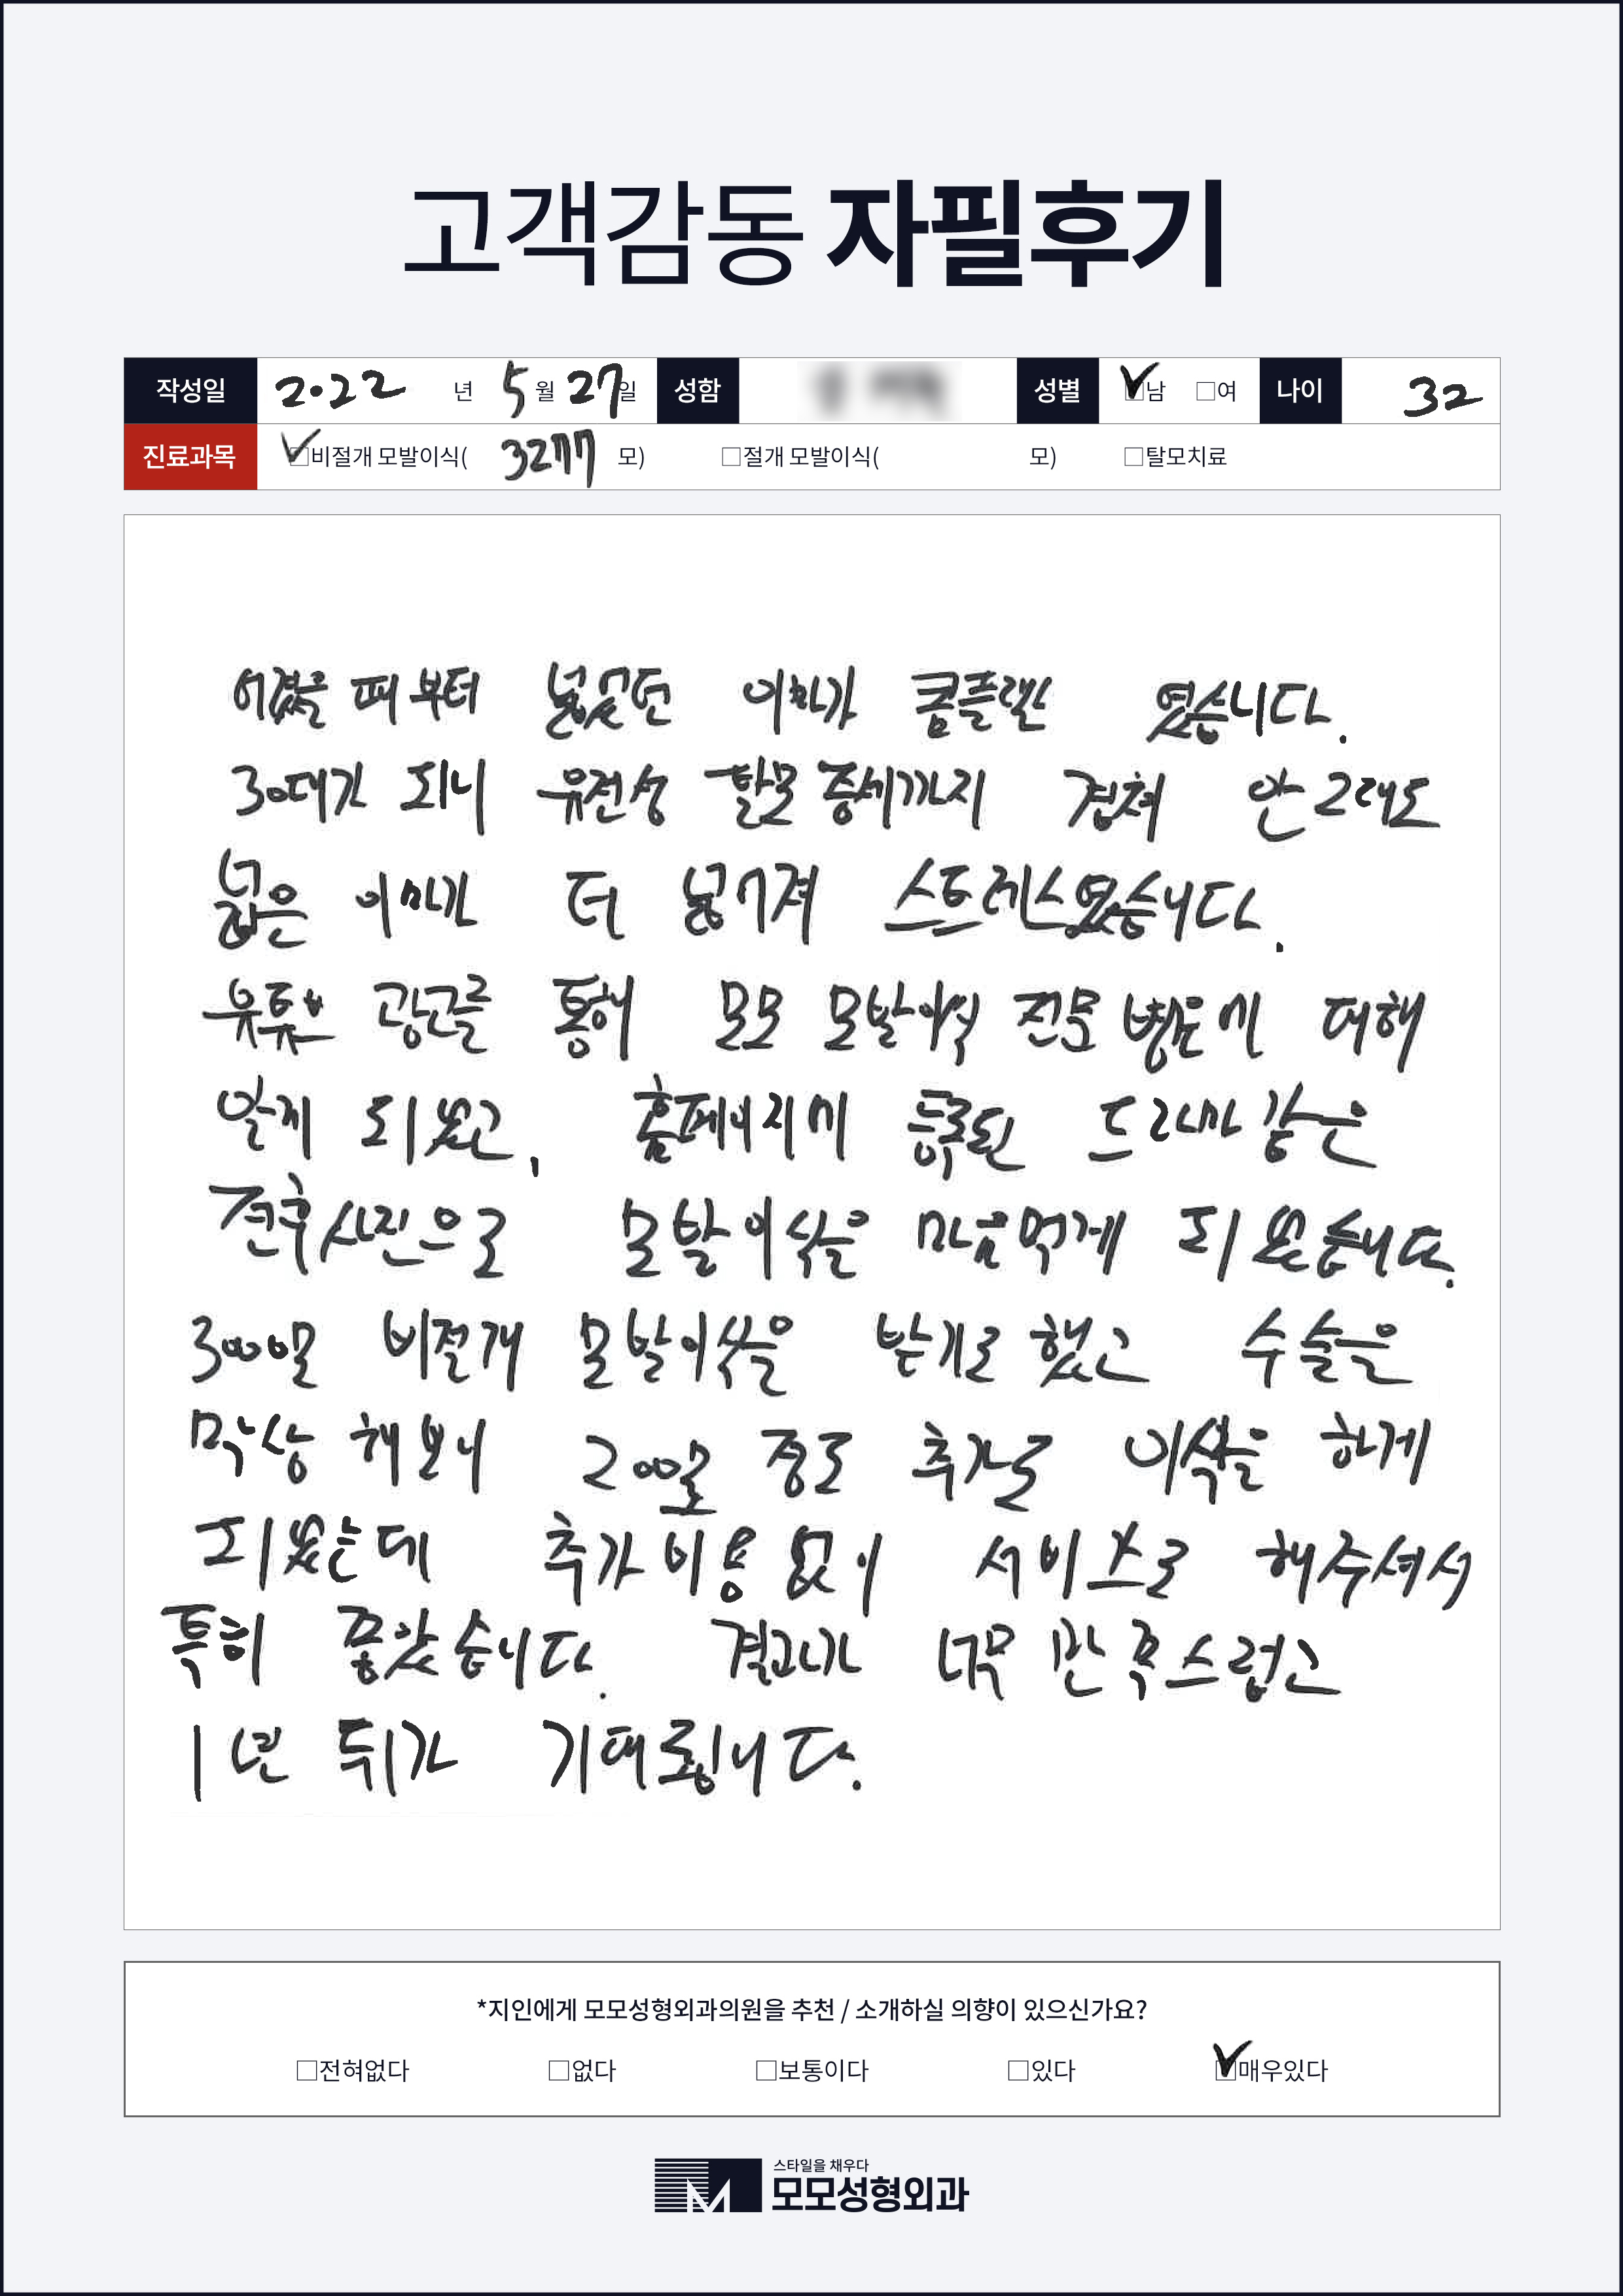 고객감동 자필후기
작성일 2022 년 5 월 27 일 성함 성별 ☑남 □여 나이 32
진료과목 ☑비절개 모발이식( 3277 모) □절개 모발이식( 모) □탈모치료
어렸을 때부터 넓었던 이마가 콤플렉스 였습니다.
30대가 되니 유전성 탈모 증세까지 겹쳐 안그래도
넓은 이마가 더 넓어져 스트레스였습니다.
유튜브 광고를 통해 모모 모발이식 전문 병원에 대해
알게 되었고, 홈페이지에 등록된 드라마 같은
전후사진으로 모발이식을 마음먹게 되었습니다.
3000모 비절개 모발이식을 받기로 했고 수술을
막상 해보니 200모 정도 추가로 이식을 하게
되었는데 추가비용 없이 서비스로 해주셔서
특히 좋았습니다. 결과가 너무 만족스럽고
1년 뒤가 기대됩니다.
*지인에게 모모성형외과의원을 추천 / 소개하실 의향이 있으신가요?
□전혀없다 □없다 □보통이다 □있다 ☑매우있다
스타일을 채우다
모모성형외과